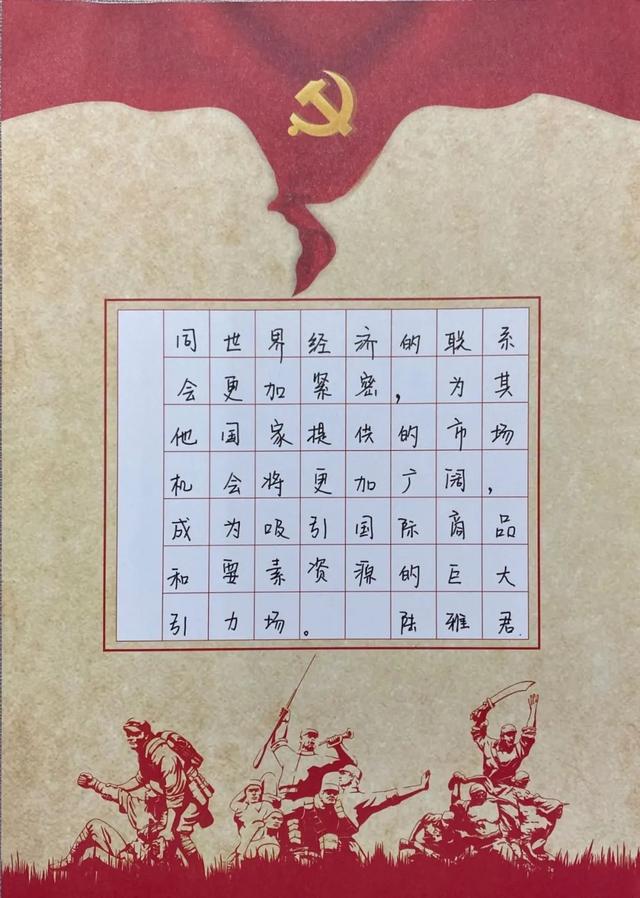 同世界经济的联系
会更加紧密，为其
他国家提供的市场
机会将更加广阔，
成为吸引国际商品
和要素资源的巨大
引力场。 陆雅君